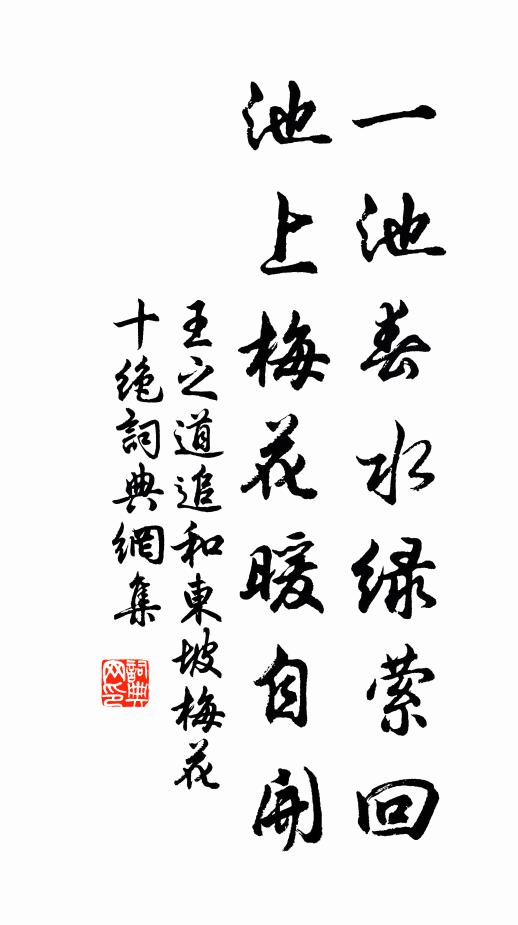 一池春水绿萦回
池上梅花暖自開
王之道追和東坡梅花
十绝詞典網集
詞典网印